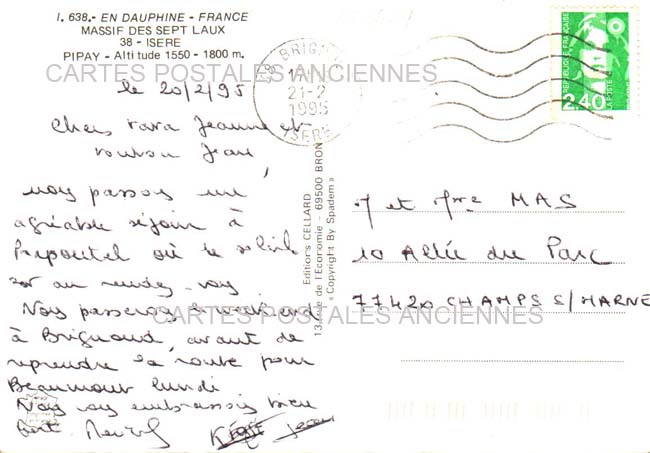 I. 638.- EN DAUPHINE - FRANCE
MASSIF DES SEPT LAUX
38 - ISERE
PIPAY - Altitude 1550 - 1800 m.
CARTES POSTALES ANCIENNES
le 20/2/95
Chers tata Jeanne et
tonton Jean,
nous passons un
agréable séjour à
Prapoutel où le soleil
est au rendez-vous
Nous passerons le week-end
à Brignoud, avant de
reprendre la route pour
Beaumont lundi
Nous vous embrassons bien
fort.
38 BRIGNOUD
21-2
1995
ISERE
REPUBLIQUE FRANÇAISE
2,40
LA POSTE
Editions CELLARD
13, rue de l'Economie - 69500 BRON
« Copyright By Spadem »
M et Mme MAS
10 Allée du Parc
77420 CHAMPS S/MARNE
CARTES POSTALES ANCIENNES